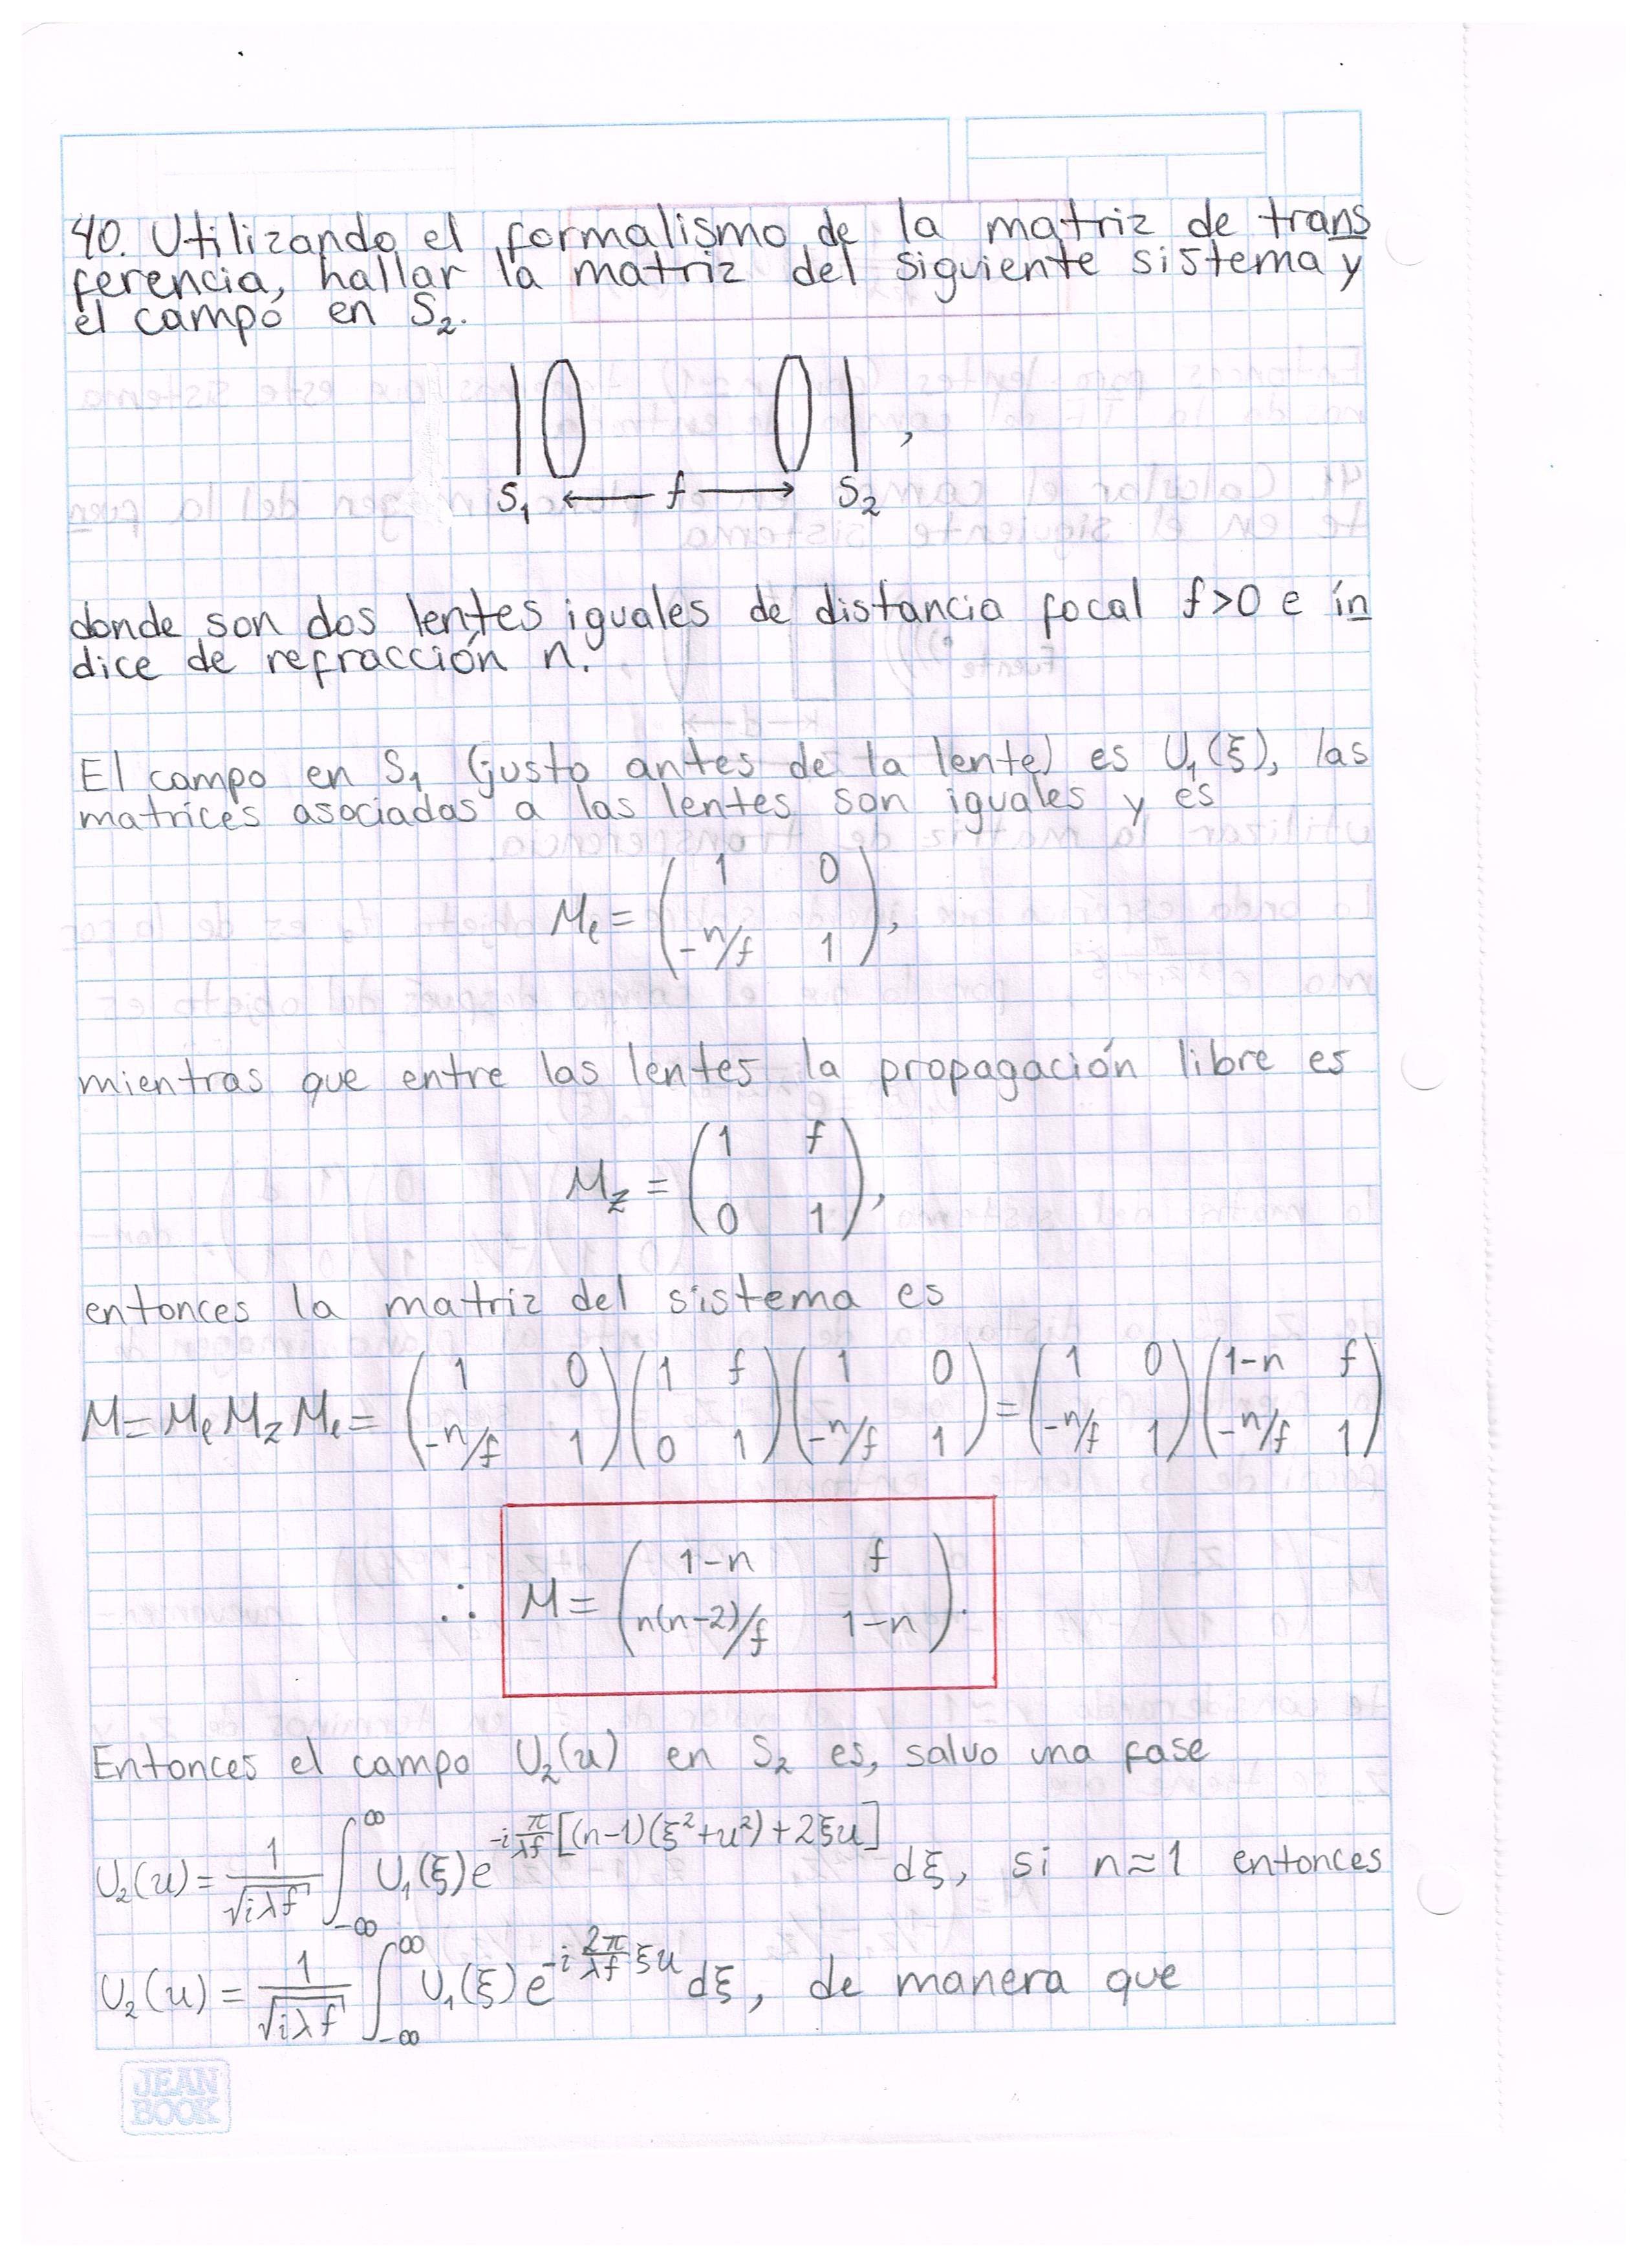 40. Utilizando el formalismo de la matriz de trans
ferencia, hallar la matriz del siguiente sistema y
el campo en S₂.
S₁ ←— f —→ S₂ ,
donde son dos lentes iguales de distancia focal f>0 e ín
dice de refracción n.
El campo en S₁ (justo antes de la lente) es U₁(ξ), las
matrices asociadas a las lentes son iguales y es
Mₗ = (1 0; -n/f 1),
mientras que entre las lentes la propagación libre es
M_z = (1 f; 0 1),
entonces la matriz del sistema es
M = Mₗ M_z Mₗ = (1 0; -n/f 1)(1 f; 0 1)(1 0; -n/f 1) = (1 0; -n/f 1)(1-n f; -n/f 1)
∴ M = (1-n f; n(n-2)/f 1-n).
Entonces el campo U₂(u) en S₂ es, salvo una fase
U₂(u) = 1/√(iλf) ∫_{-∞}^{∞} U₁(ξ) e^{-i π/λf [(n-1)(ξ²+u²)+2ξu]} dξ, si n≈1 entonces
U₂(u) = 1/√(iλf) ∫_{-∞}^{∞} U₁(ξ) e^{-i 2π/λf ξu} dξ, de manera que
JEAN
BOOK